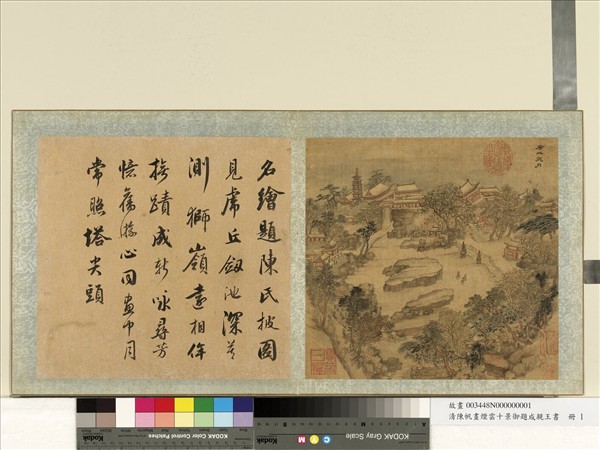 名繪題陳氏披圖
見虎丘劔池深莫
測獅嶺遠相侔
接蹟成新詠尋芳
憶舊游心同畫中月
常照塔尖頭
Kodak Color Control Patches
KODAK Gray Scale
C Y M
Kodak
故畫 003448N000000001
清陳帆畫煙雲十景御題成親王書 冊 1